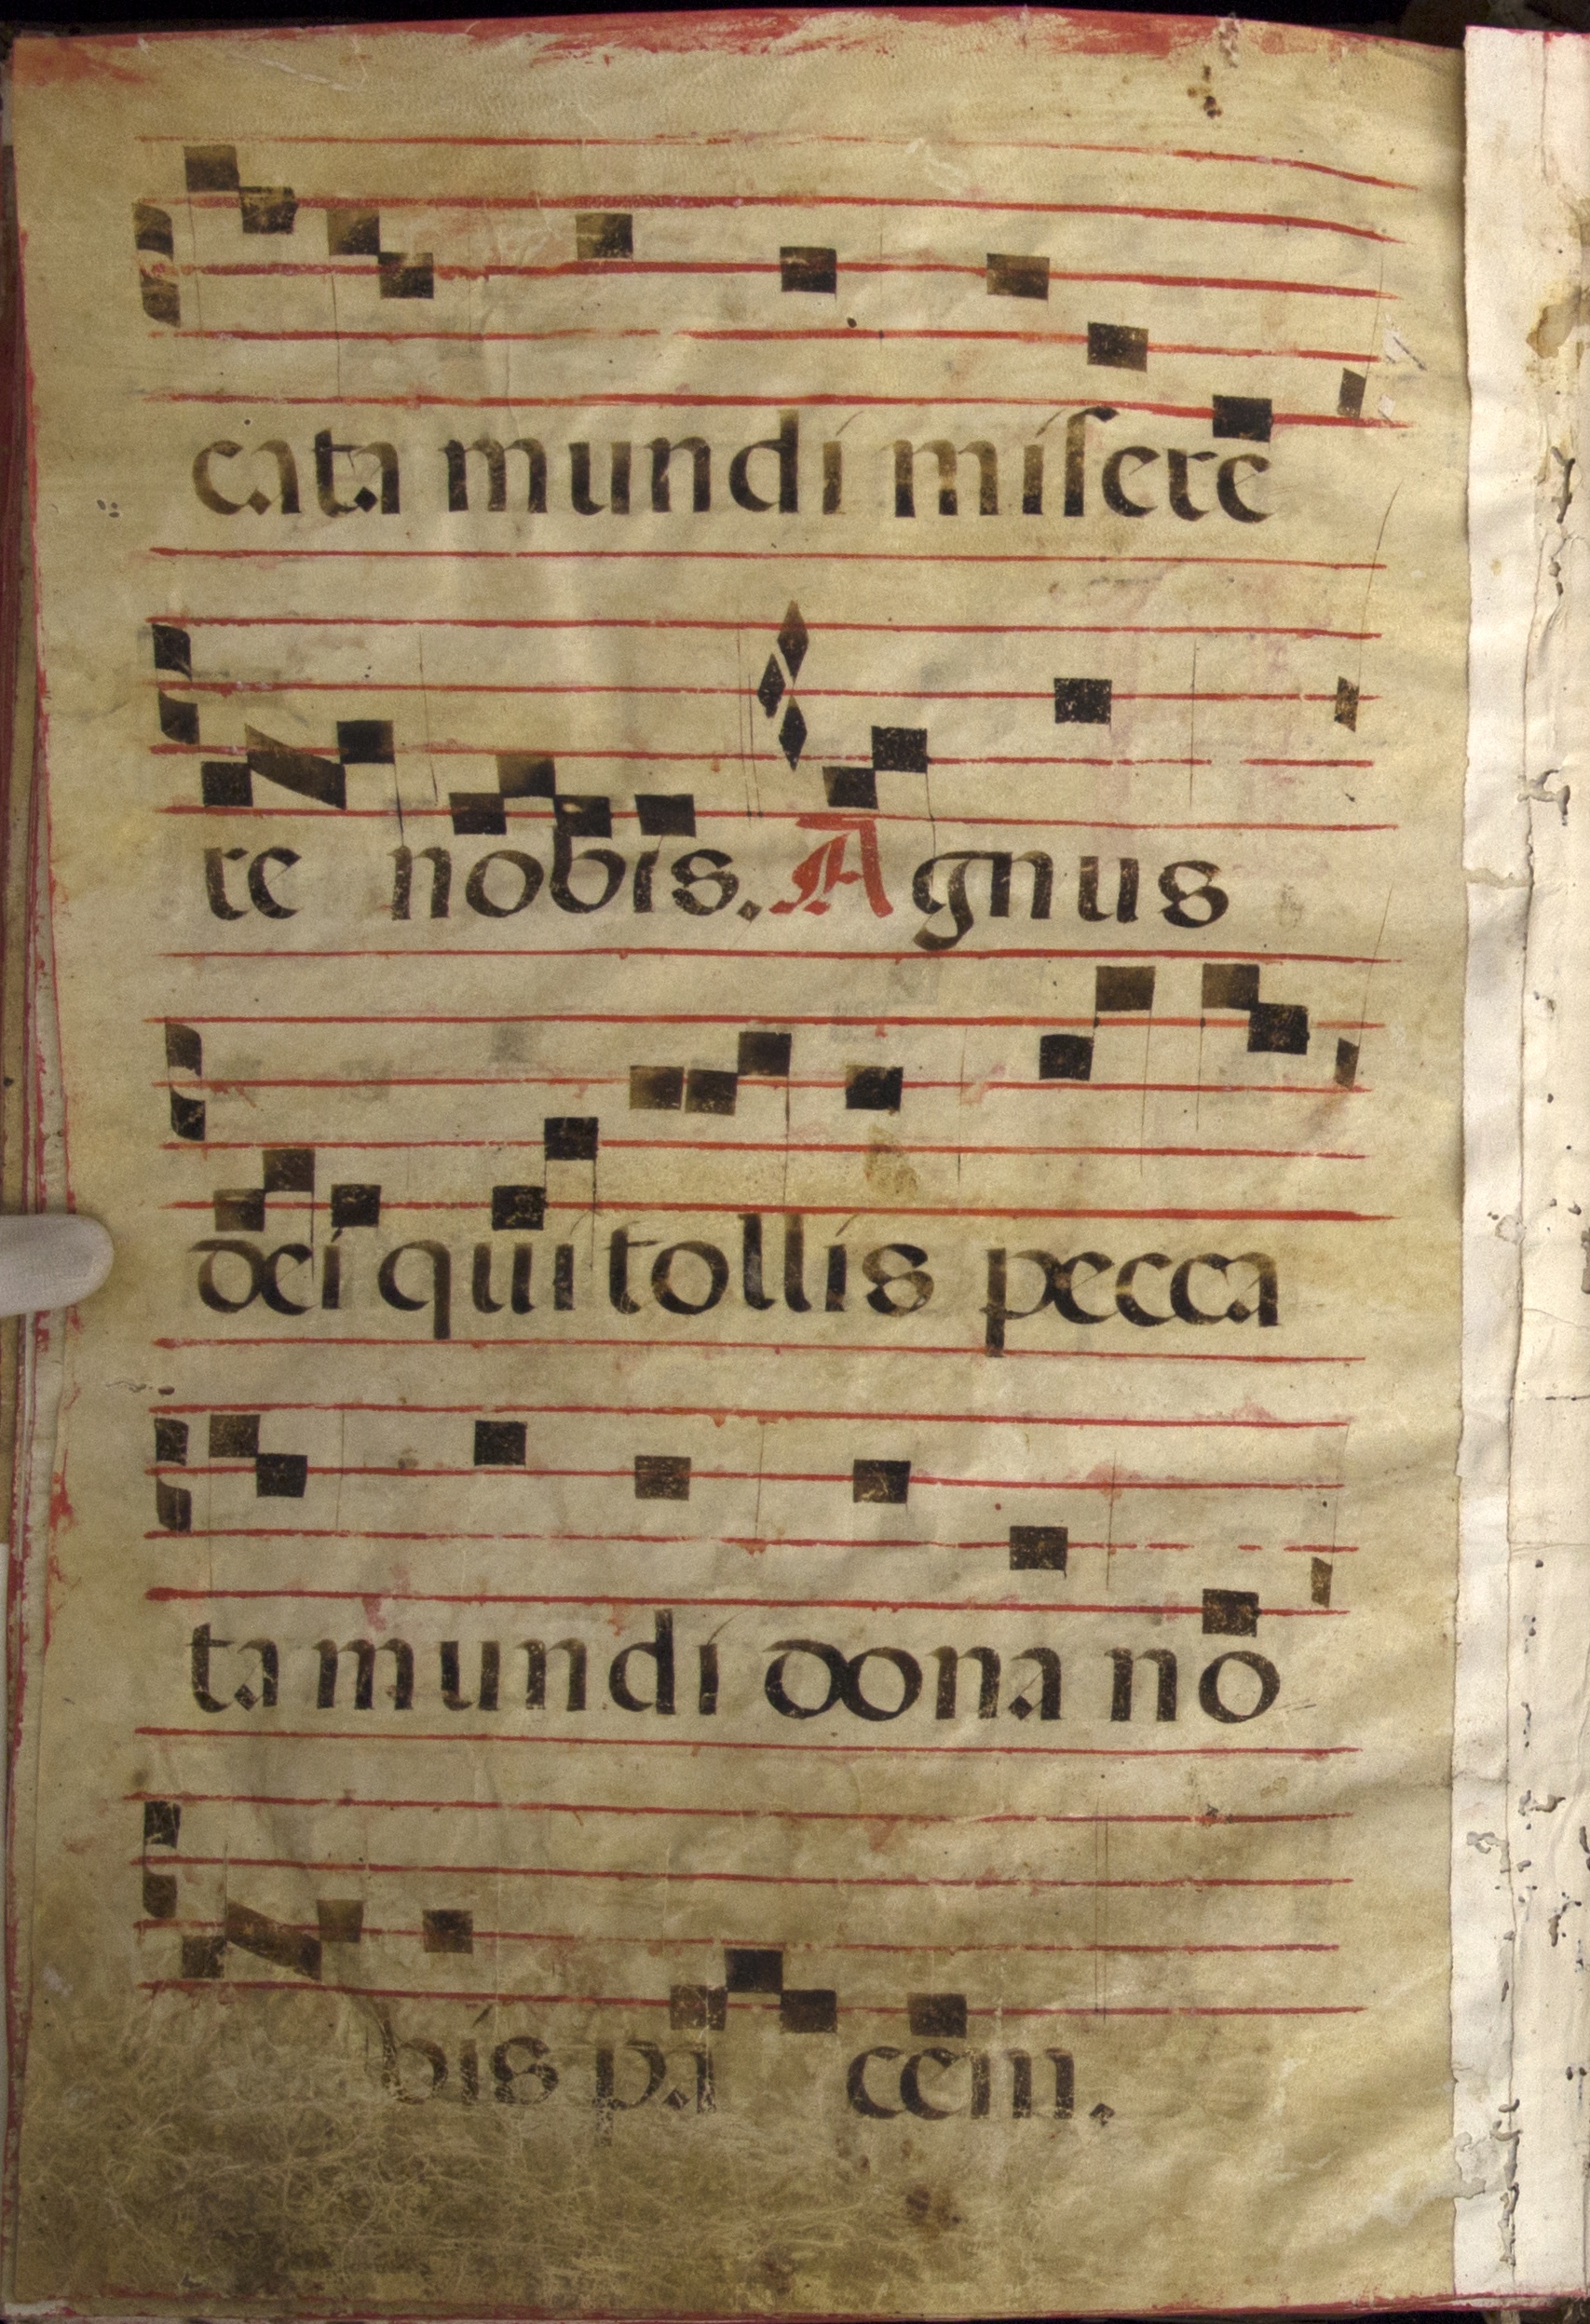 cata mundi miſere
re nobis. Agnus
dei qui tollis pecca
ta mundi dona no
bis pa cem.